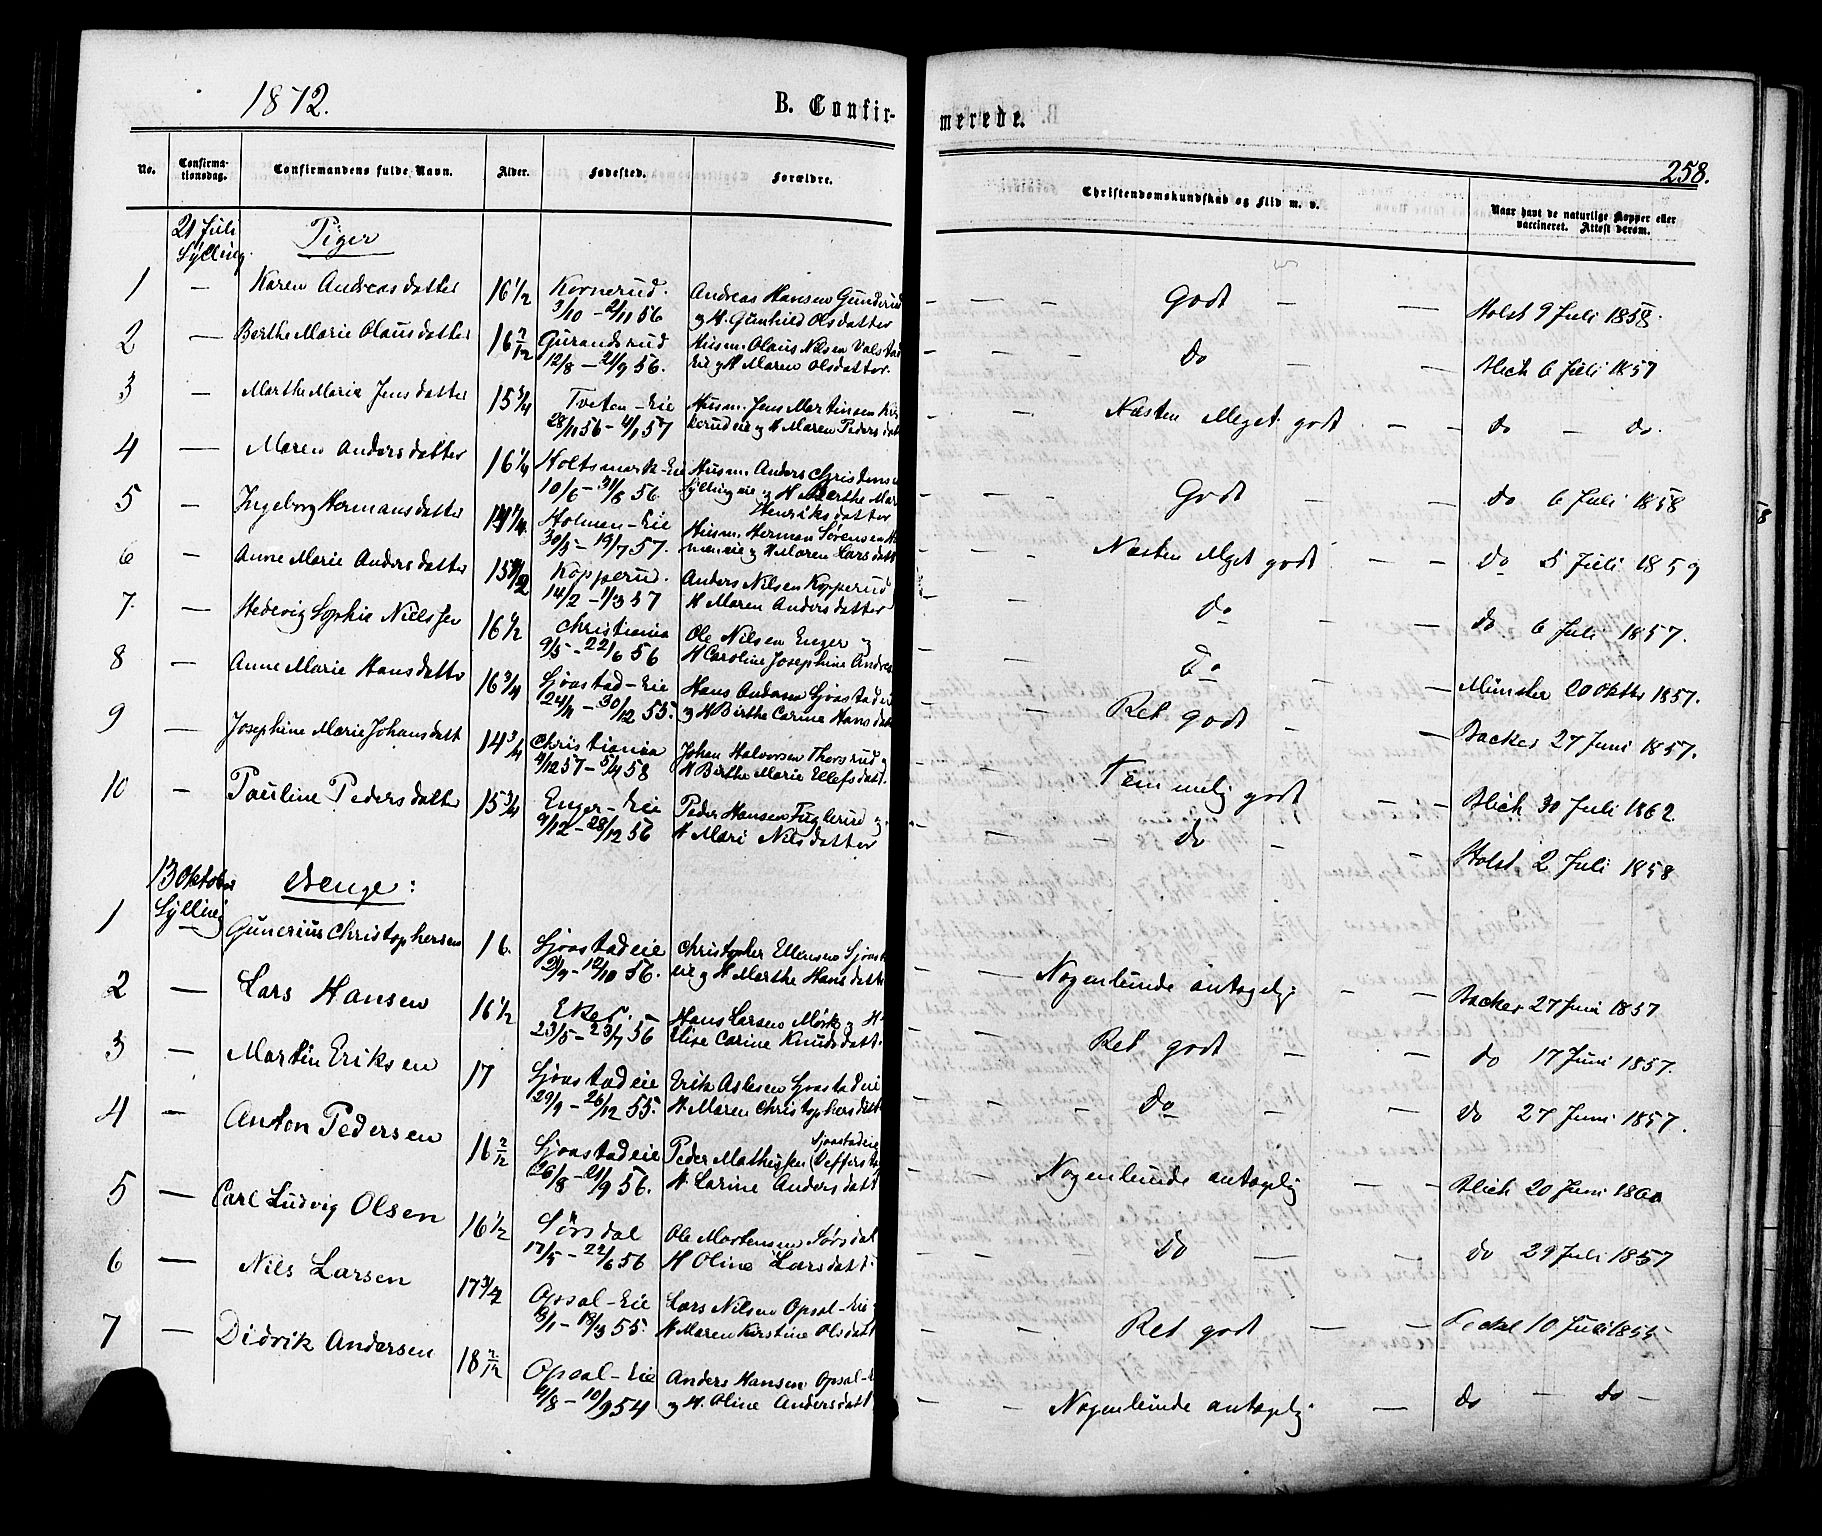 1872.
B. Confir-
merede.
258.
No.
Confirma-
tionsdag.
Confirmandens fulde Navn.
Alder.
Fødested.
Forældre.
Christendomskundskab og Flid m. v.
Naar havt de naturlige Kopper eller
vaccineret. Attest derom.
21 Juli
Sylling.
Piger
1 — Karen Andreasdatter 16 1/2 Kornerud. Andreas Hansen Gunderud — — — Godt — — Holst 9 Juli 1858.
3/10 – 2/11 56 og H. Gunhild Olsdatter
2 — Berthe Marie Olausdatter 16 2/12 Gurandsrud Husm. Olaus Nilsen Valstad — — — Do — — Blich 6 Juli 1857
12/8 – 21/9 56. Eie og H Maren Olsdatter.
3 Marthe Maria Jensdatter 15 3/4 Tveten-Eie Husm. Jens Martinsen — — Næsten Meget godt — — do — do.
28/11 56 – 4/1 57 og H Maren Pedersdatt
4 — Maren Andersdatter 16 1/4 Holtsmark-Eie Husm. Anders Christensen — — Godt — — do 6 Juli 1858
10/6 – 31/8 56. Syllingeie og H Berthe Mar
Henriksdatter
5 — Ingeborg Hermansdatter Holmen-Eie Husm. Herman Sørensen — — Næsten Meget godt — — Do 5 Juli 1859
30/5 – 19/7 57. meneie og H Maren Larsdatt
6 — Anne Marie Andersdatter Kopperud. Anders Nilsen Kopperud — — do do 6 Juli 1857.
14/2 – 1/3 57 H Maren Andersdatter
7. — Hedevig Sophie Nielssen 16 1/2 Christiania Ole Nilsen Enger og — do — — Münster 20 Oktbr 1857.
9/5 – 22/6 56 H Caroline Josephine Andrea
8 — Anne Marie Hansdatter 16 3/4 Sjøastad-Eie Hans Andersen Sjøastadeie — — Ret godt — — Backer 27 Juni 1857.
24/11 – 30/12 55. og H Birthe Carine Hansdatt
9 — Josephine Marie Johansdatt 14 3/4 Christiania Johan Halvorsen Thorsrud og — — Temmelig godt — — Blich 30 Juli 1862.
4/12 57 – 5/4 58 H Birthe Marie Ellefsdatt.
10 — Pauline Pedersdatter 15 3/4 Enger-Eie Peder Hansen Fuglerud og — — Do — — Holst 2 Juli 1858
9/12 – 28/12 56 H Mari Nilsdatter
13 Oktober
Sylling
Drenge:
1 — Gunerius Christophersen 16. Sjøastadeie Christopher Ellensen Sjøast — — Nogenlunde antagelig — — Backer 27 Juni 1857
2/9 – 12/10 56. eie og H Marthe Hansdatte
2 — Lars Hansen 16 1/2 Eker. — Hans Larsen Mørk og H. — — Ret godt — — do 17 Juni 1857.
23/5 – 23/7 56 Elise Carine Knudsdatt.
3 — Martin Eriksen 17 Sjøastadeie Erik Aslesen Sjøastadeie — — Do — — do 27 Juni 1857.
29/9 – 26/12 55. H. Maren Christophersdatt
4 — Anton Pedersen 16 2/12 Sjøastadeie Peder Mathissen (Sjøastadeie — — Nogenlunde antagelig — — Blich 20 Juni 1860
26/8 – 21/9 56. H. Larine Andersdatt
5 — Carl Ludvig Olsen 16 1/2 Sørsdal Ole Mortensen Sørsdal — — Do — — do 29 Juli 1857
17/5 – 22/6 56 H Oline Larsdatt.
6 — Nils Larsen 17 3/4 Opsal-Eie Lars Nilsen Opsal-Eie — — Ret godt — — 10 Juli 1855
13/1 – 18/3 55. H Maren Kirstine Olsdatt
7 — Didrik Andersen 18 2/12 Opsal-Eie Anders Hansen Opsal- — — Nogenlunde antagelig — do — do —
4/8 – 10/9 54 og H. Oline Andersdatt